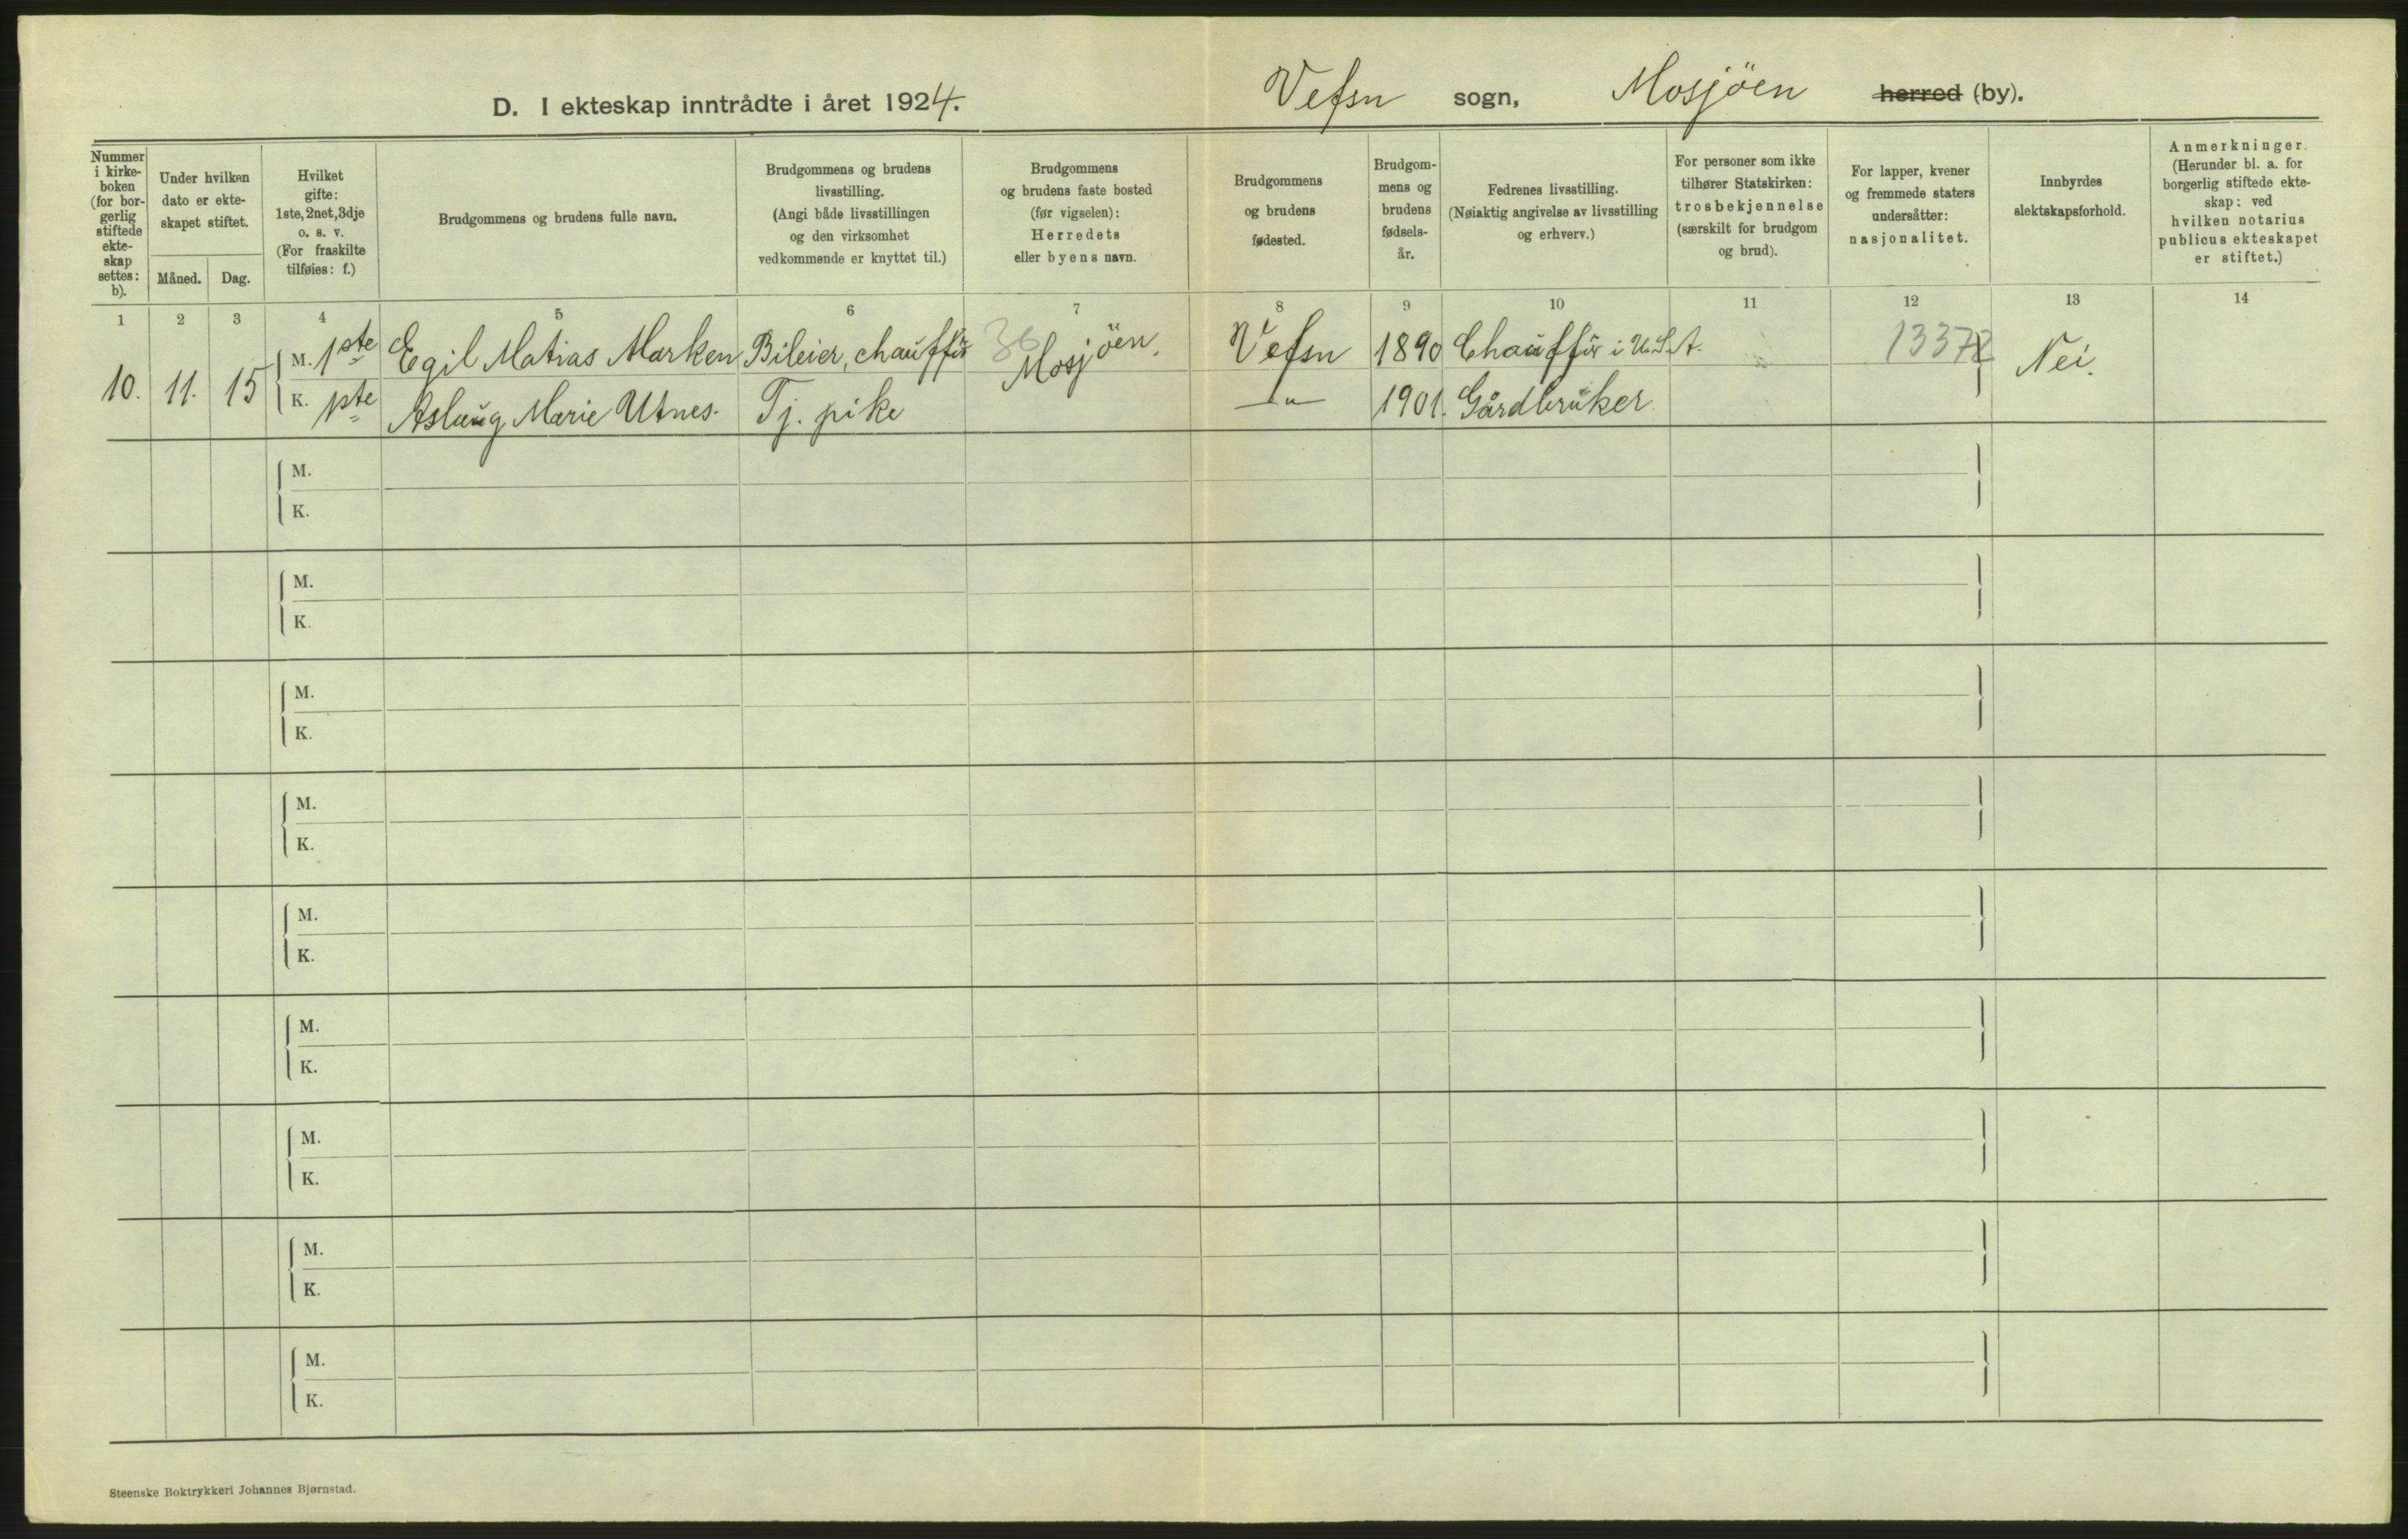 D. I ekteskap inntrådte i året 1924. Vefsn sogn, Mosjöen herred (by).
Nummer
i kirke-
boken
(for bor-
gerlig
stiftede
ekte-
skap
settes:
b).
Under hvilken
dato er ekte-
skapet stiftet.
Måned. Dag.
Hvilket
gifte:
1ste, 2net, 3dje
o. s. v.
(For fraskilte
tilføies: f.)
Brudgommens og brudens fulle navn.
Brudgommens og brudens
livsstilling.
(Angi både livsstillingen
og den virksomhet
vedkommende er knyttet til.)
Brudgommens
og brudens faste bosted
(før vigselen):
Herredets
eller byens navn.
Brudgommens
og brudens
fødested.
Brudgom-
mens og
brudens
fødsels-
år.
Fedrenes livsstilling.
(Nøiaktig angivelse av livsstilling
og erhverv.)
For personer som ikke
tilhører Statskirken:
trosbekjennelse
(særskilt for brudgom
og brud).
For lapper, kvener
og fremmede staters
undersåtter:
nasjonalitet.
Innbyrdes
slektskapsforhold.
Anmerkninger.
(Herunder bl. a. for
borgerlig stiftede ekte-
skap: ved
hvilken notarius
publicus ekteskapet
er stiftet.)
1 2 3 4 5 6 7 8 9 10 11 12 13 14
10. 11. 15 M. 1ste Egil Matias Marken Bileier, chauffür 36 Mosjöen. Vefsn 1890 Chauffür i U.S.A. 13372 Nei.
K. 1ste Aslaug Marie Utnes. Tj. pike —„— 1901. Gårdbruker
M.
K.
M.
K.
M.
K.
M.
K.
M.
K.
M.
K.
M.
K.
M.
K.
M.
K.
Steenske Boktrykkeri Johannes Bjørnstad.